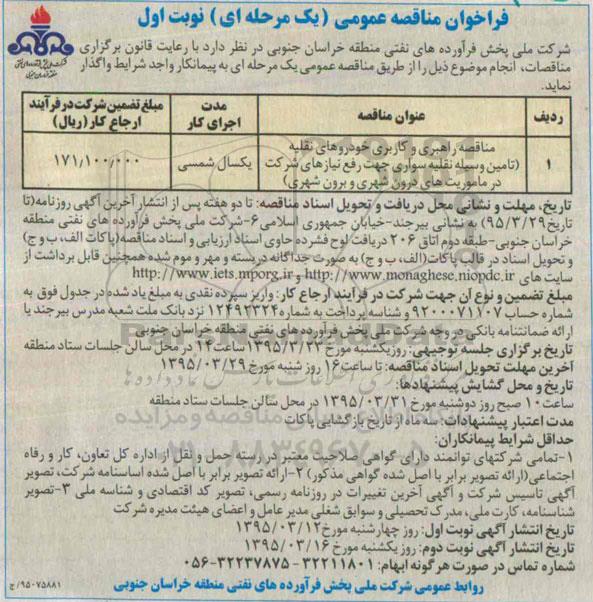 فراخوان مناقصه عمومی (یک مرحله ای) نوبت اول
شرکت ملی پخش فرآورده های نفتی منطقه خراسان جنوبی در نظر دارد با رعایت قانون برگزاری
مناقصات، انجام موضوع ذیل را از طریق مناقصه عمومی یک مرحله ای به پیمانکار واجد شرایط واگذار
نماید.
ردیف عنوان مناقصه مدت اجرای کار مبلغ تضمین شرکت در فرآیند ارجاع کار (ریال)
۱ مناقصه راهبری و کاربری خودروهای نقلیه (تامین وسیله نقلیه سواری جهت رفع نیازهای شرکت در ماموریت های درون شهری و برون شهری) یکسال شمسی ۱۷۱/۱۰۰/۰۰۰
تاریخ، مهلت و نشانی محل دریافت و تحویل اسناد مناقصه: تا دو هفته پس از انتشار آخرین آگهی روزنامه(تا
تاریخ ۹۵/۳/۲۹) به نشانی بیرجند-خیابان جمهوری اسلامی۶-شرکت ملی پخش فرآورده های نفتی منطقه
خراسان جنوبی-طبقه دوم اتاق ۲۰۶ دریافت لوح فشرده حاوی اسناد ارزیابی و اسناد مناقصه(پاکات الف، ب و ج)
و تحویل اسناد در قالب پاکات(الف، ب و ج) به صورت جداگانه دربسته و مهر و موم شده همچنین قابل برداشت از
سایت های http://www.monaghese.niopdc.ir و http://www.iets.mporg.ir
مبلغ تضمین و نوع آن جهت شرکت در فرآیند ارجاع کار: واریز سپرده نقدی به مبلغ یاد شده در جدول فوق به
شماره حساب ۹۲۰۰۰۷۱۱۰۷ و شناسه پرداخت به شماره ۱۲۴۹۲۳۲۴ نزد بانک ملت شعبه مدرس بیرجند یا
ارائه ضمانتنامه بانکی در وجه شرکت ملی پخش فرآورده های نفتی منطقه خراسان جنوبی
تاریخ برگزاری جلسه توجیهی: روز یکشنبه مورخ ۱۳۹۵/۳/۲۳ ساعت ۱۴ در محل سالن جلسات ستاد منطقه
آخرین مهلت تحویل اسناد مناقصه: تا ساعت ۱۶ روز شنبه مورخ ۱۳۹۵/۰۳/۲۹
تاریخ و محل گشایش پیشنهادها:
ساعت ۱۰ صبح روز دوشنبه مورخ ۱۳۹۵/۰۳/۳۱ در محل سالن جلسات ستاد منطقه
مدت اعتبار پیشنهادات: سه ماه از تاریخ بازگشایی پاکات
حداقل شرایط پیمانکاران:
۱-تمامی شرکتهای توانمند دارای گواهی صلاحیت معتبر در رسته حمل و نقل از اداره کل تعاون، کار و رفاه
اجتماعی(ارائه تصویر برابر با اصل شده گواهی مذکور) ۲-ارائه تصویر برابر با اصل شده اساسنامه شرکت، تصویر
آگهی تاسیس شرکت و آگهی آخرین تغییرات در روزنامه رسمی، تصویر کد اقتصادی و شناسه ملی ۳-تصویر
شناسنامه، کارت ملی، مدرک تحصیلی و سوابق شغلی مدیر عامل و اعضای هیئت مدیره شرکت
تاریخ انتشار آگهی نوبت اول: روز چهارشنبه مورخ ۱۳۹۵/۰۳/۱۲
تاریخ انتشار آگهی نوبت دوم: روز یکشنبه مورخ ۱۳۹۵/۰۳/۱۶
شماره تماس در صورت هرگونه ابهام: ۳۲۲۱۱۸۰۱-۳۲۲۳۷۸۷۵-۰۵۶
روابط عمومی شرکت ملی پخش فرآورده های نفتی منطقه خراسان جنوبی
۹۵۰۷۵۸۸۱/ج